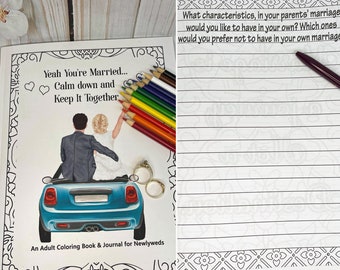 Yeah You're Married...
Calm down and
Keep It Together
An Adult Coloring Book & Journal for Newlyweds
What characteristics, in your parents' marriage
would you like to have in your own? Which ones
would you prefer not to have in your own marriage